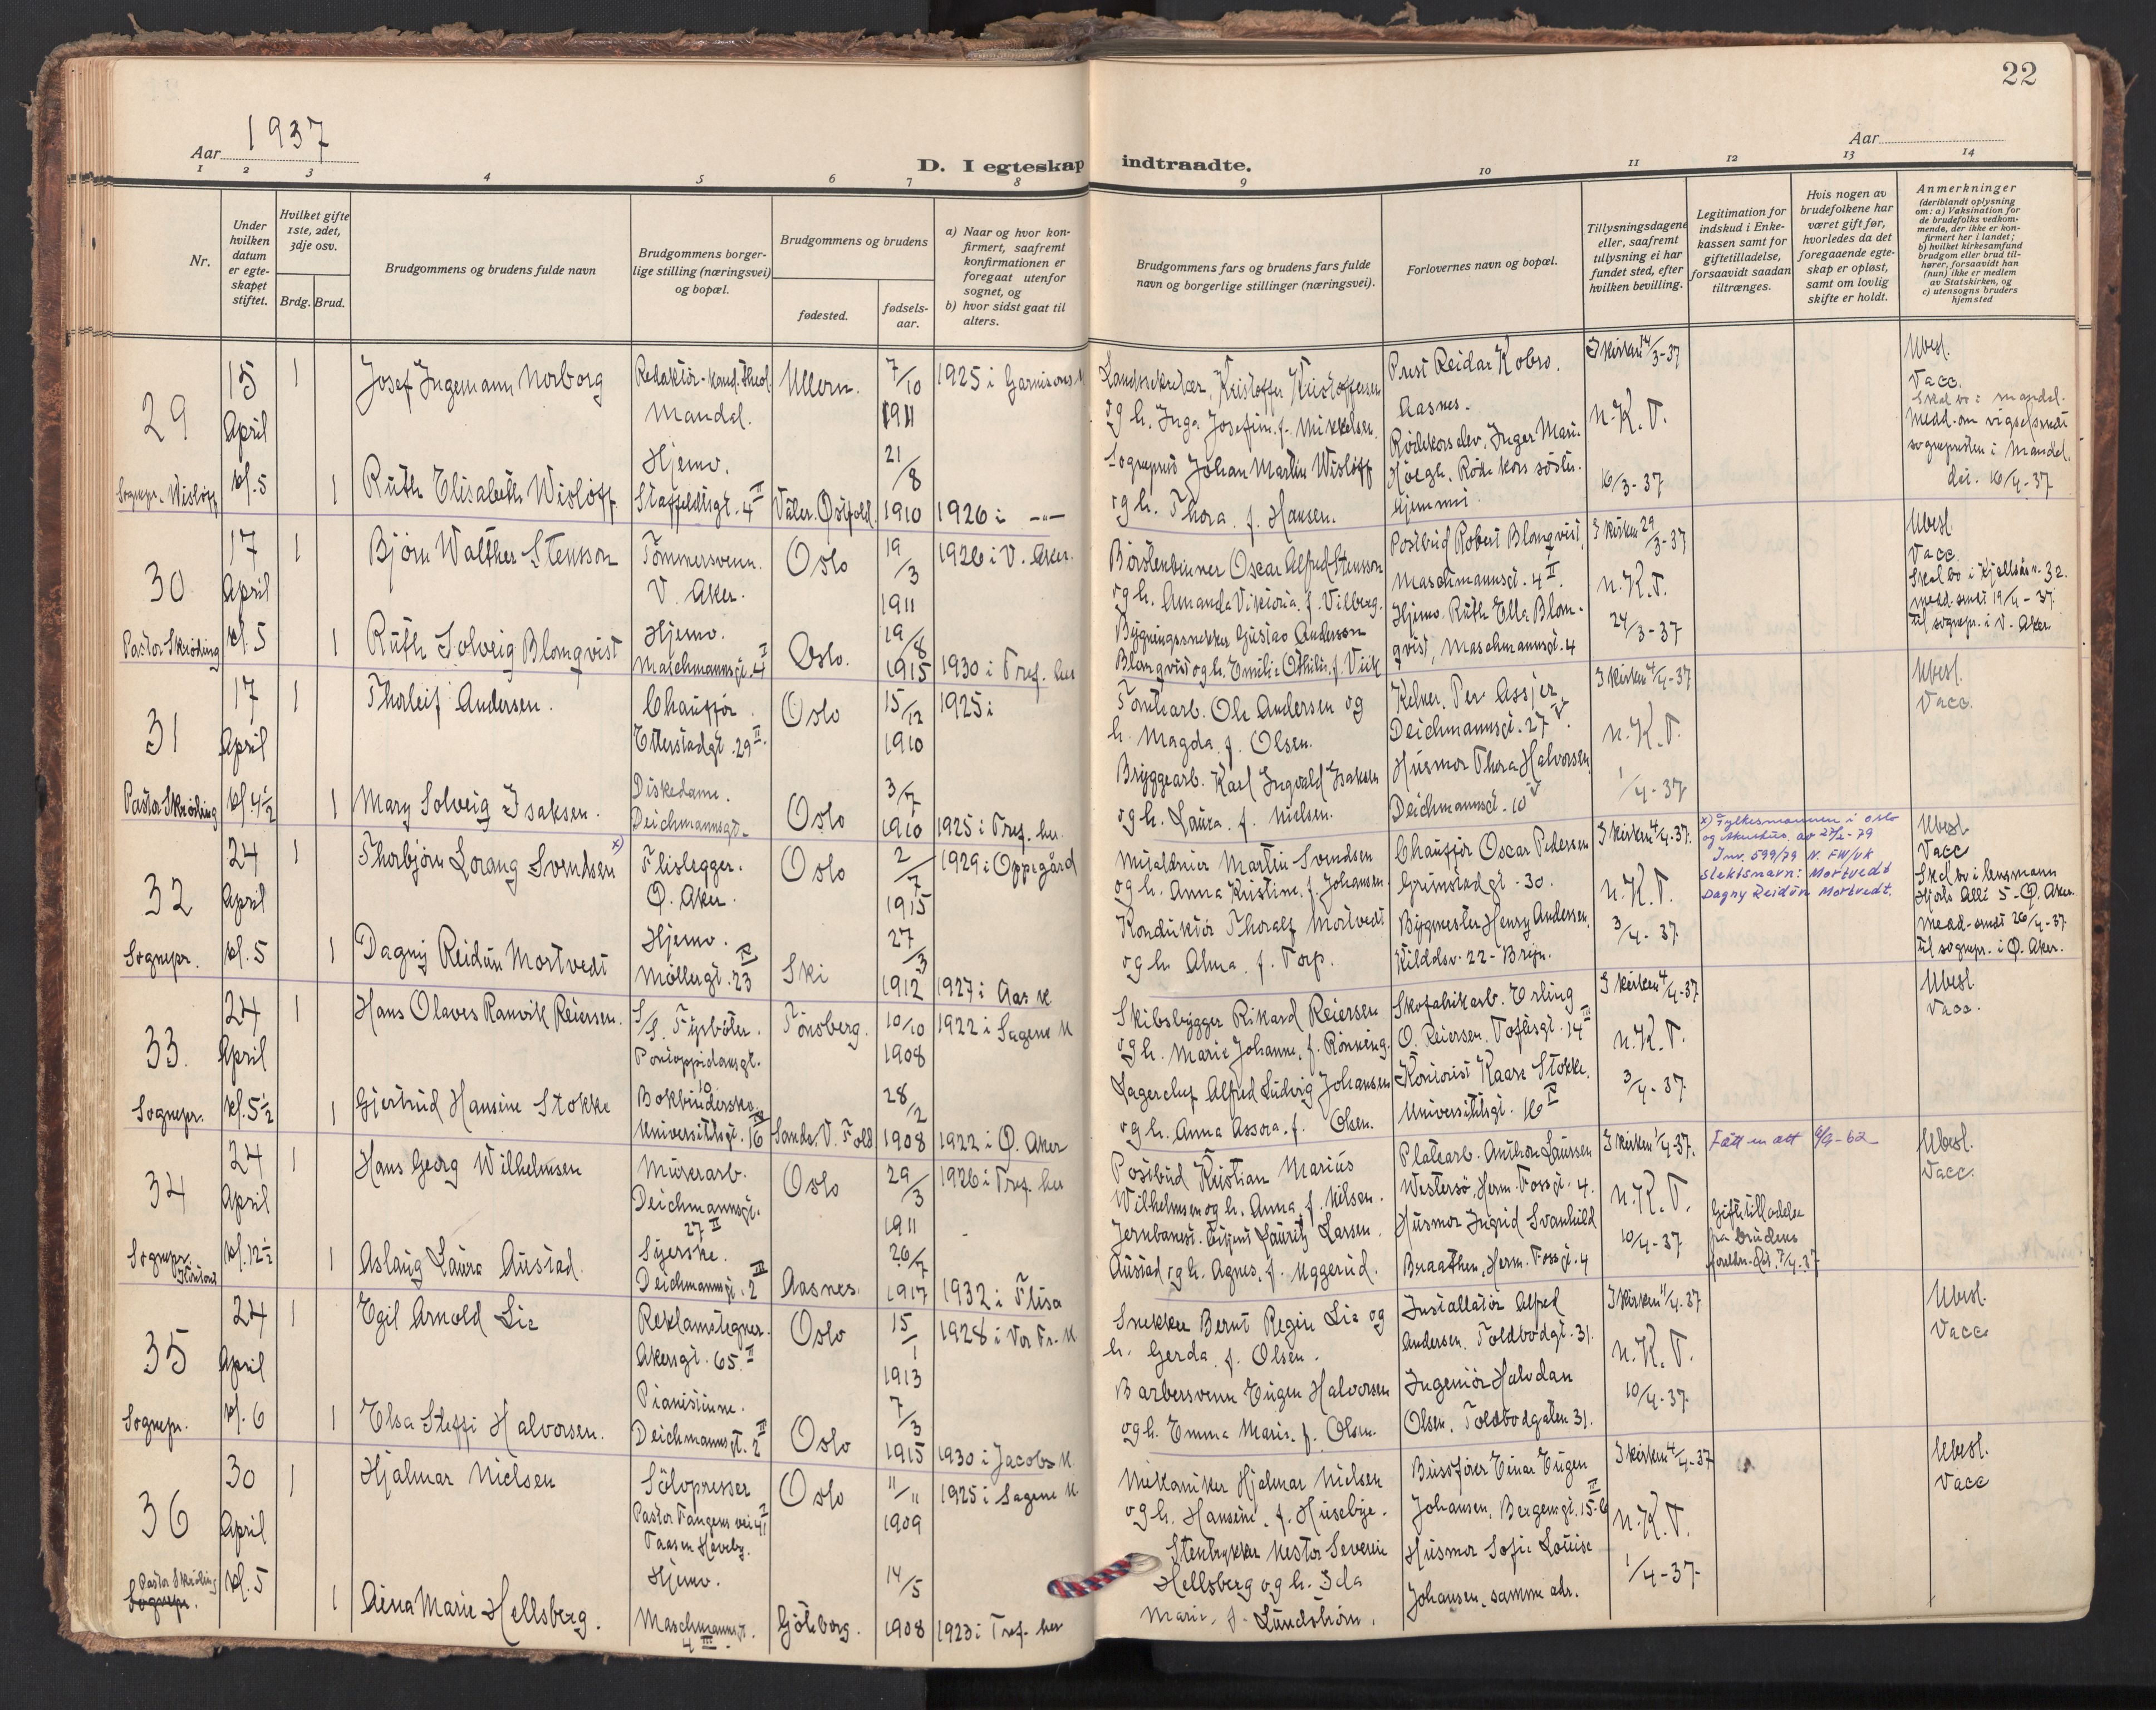 22
Aar 1937
Aar
D. I egteskap indtraadte.
1 2 3 4 5 6 7 8 9 10 11 12 13 14
Nr.
Under hvilken datum er egteskapet stiftet.
Hvilket gifte 1ste, 2det, 3dje osv.
Brdg. Brud.
Brudgommens og brudens fulde navn
Brudgommens borgerlige stilling (næringsvei) og bopæl.
Brudgommens og brudens
fødested.
fødselsaar.
a) Naar og hvor konfirmert, saafremt konfirmationen er foregaat utenfor sognet, og
b) hvor sidst gaat til alters.
Brudgommens fars og brudens fars fulde navn og borgerlige stillinger (næringsvei).
Forlovernes navn og bopæl.
Tillysningsdagene eller, saafremt tillysning ei har fundet sted, efter hvilken bevilling.
Legitimation for indskud i Enkekassen samt for giftetilladelse, forsaavidt saadan tiltrænges.
Hvis nogen av brudefolkene har været gift før, hvorledes da det foregaaende egteskap er opløst, samt om lovlig skifte er holdt.
Anmerkninger
(deriblandt oplysning om: a) Vaksination for de brudefolks vedkommende, der ikke er konfirmert her i landet;
b) hvilket kirkesamfund brudgom eller brud tilhører, forsaavidt han (hun) ikke er medlem av Statskirken, og
c) utensogns bruders hjemsted
29
15 April kl. 5
Sognepr. Wisløff
1 Josef Ingemann Norborg
Redaktør - kand. theol. Mandal.
Ullern.
7/10 1911
1925 i Garnisons K
Landssekretær, Kristoffer Kristoffersen
og h. Inga Josefine f. Mikkelsen.
Prest Reidar Kobro.
Aasnes.
I kirken 14/3-37
n.K.T.
16/3-37
Ubesl.
Vacc.
Skal bo i Mandal.
Medd. om vigsel sendt
sognepresten i Mandal
16/4-37
1 Ruth Elisabeth Wisløff
Hjemv.
Staffeldtsgt. 4 II
Våler. Østfold.
21/8 1910
1926 i -"-
Sogneprest Johan Martin Wisløff
og h. Thora f. Hansen.
Rødekors elev. Inger Marie
Høegh. Røde kors søster-
hjemmi
30
17 April kl. 5
Pastor Skrøding
1 Bjørn Walther Stensson
Tømmersvenn.
V. Aker.
Oslo
19/3 1911
1926 i V. Aker.
Børstenbinner Oscar Alfred Stensson
og h. Amanda Viktoria f. Vilberg.
Postbud Robert Blomqvist,
Maschmannsgt. 4 II.
I kirken 29/3-37
n.K.T.
24/3-37
Ubesl.
Vacc.
Skal bo i Kjellsåsv. 32.
medd. sendt 19/4-37.
til sognepr. i V. Aker
1 Ruth Solveig Blomqvist
Hjemv.
Maschmannsgt. 4 I
Oslo.
19/8 1915
1930 i Tref. her
Bygningssnekker Gustav Anderson
Blomqvist og h. Emilie Othilie f. Viik
Hjemv. Ruth Ella Blom-
qvist, Maschmannsgt. 4
31
17 April kl. 4 1/2
Pastor Skrøding
1 Thorleif Andersen.
Chauffør.
Etterstadgt. 29 II.
Oslo
15/12 1910
1925 i
Tomtearb. Ole Andersen og
h. Magda f. Olsen.
Kelner. Per Assjer,
Deichmannsgt. 27 V.
I kirken 4/4-37
n.K.T.
1/4-37
Ubesl.
Vacc.
1 Mary Solveig Isaksen.
Diskedame.
Deichmannsgt.
Oslo
3/7 1910
1925 i Tref. her.
Bryggearb. Karl Ingvald Isaksen
og h. Laura f. Nielsen.
Husmor Thora Halvorsen,
Deichmannsgt. 10 V
32
24 April kl. 5
Sognepr.
1 Thorbjørn Lorang Svendsen x)
Fliselegger.
Ø. Aker.
Oslo
2/7 1915
1929 i Oppegård
Martin Svendsen
og h. Anna Kristine f. Johansen.
Chauffør Oscar Pedersen
Grimstadgt. 30.
I kirken 4/4-37.
n.K.T.
3/4-37
x) Fylkesmannen i Oslo
og Akershus av 27/2-79
Jnr. 599/79 N. FW/VK
slektsnavn: Mortvedt
Dagny Reidun Mortvedt.
Ubesl.
Vacc
Skal bo i lensmann
Hjorts Allé 5 - Ø. Aker.
Medd. sendt 26/4-37.
til sognepr. i Ø. Aker.
1 Dagny Reidun Mortvedt
Hjemv.
Møllergt. 23 IV
Ski
27/3 1912
1927 i Aas K
Konduktør Thoralf Mortvedt
og h. Alma f. Torp.
Bygmester Henry Andersen,
Kilddsv. 22 - Bryn.
33.
24 April kl. 5 1/2
Sognepr.
1 Hans Olaves Ranvik Reiersen.
S/S. Fyrbøter.
Pontoppidansgt. 10
Tønsberg.
10/10 1908
1922 i Sagene K
Skibsbygger Rikard Reiersen
og h. Marie Johanne f. Rønning.
Skofabrikarb. Erling
O. Reiersen. Toftesgt. 14 III
I kirken 4/4-37
n.K.T.
3/4-37.
Ubesl
Vacc.
1 Gjertrud Hansine Stokke
Bokbinderske.
Universitetsgt. 16 IV
Sande. V. Fold
28/2 1908
1922 i Ø. Aker
Lagerchef Alfred Ludvig Johansen
og h. Anna Assora f. Olsen.
Kontorist Kaare Stokke.
Universitetsgt. 16 IV
34
24 April kl. 12 1/2
Sognepr.
1 Hans Georg Wilhelmsen
Murerarb.
Deichmannsgt. 27 II
Oslo
29/3 1911
1926 i Tref. her
Postbud Kristian Marius
Wilhelmsen og h. Anna f. Nilsen.
Platearb. Anthon Laurssen
Westersø, Herm. Fossgt. 4.
I kirken 1/4-37.
n.K.T.
10/4-37
Fått en att 6/9-62
Giftetilladelse
fra brudens
foreldre
Ubesl.
Vacc.
1 Aslaug Laura Austad.
Syerske.
Deichmannsgt. 2 III
Aasnes.
26/7 1917
1932 i Flisa
Jernbanest. betjent Lauritz Larsen
Austad og h. Agnes f. Uggerud.
Husmor Ingrid Svanhild
Braathen, Herm. Fossgt. 4
35
24 April kl. 6
Sognepr.
1 Egil Arnold Lie
Reklametegner.
Akersgt. 65 II
Oslo
15/1 1913
1928 i Vor Fr. K
Snekker Bernt Regin Lie og
h. Gerda f. Olsen.
Installatør Alfred
Andersen. Toldbodgt. 31.
I kirken 11/4-37
n.K.T.
10/4-37.
Ubesl.
Vacc
1 Elsa Steffi Halvorsen.
Pianistinne.
Deichmannsgt. 2 III
Oslo
7/3 1915
1930 i Jacobs K
Barbersvenn Eugen Halvorsen
og h. Emma Marie f. Olsen.
Ingeniør Halvdan
Olsen. Toldbodgaten 31.
36
30 April kl. 5
Pastor Skrøding
Sognepr.
1 Hjalmar Nielsen
Sølvpresser
Pastor Fangens vei 41 I
Taasen Haveby.
Oslo
11/11 1909
1925 i Sagene K
Mekaniker Hjalmar Nielsen
og h. Hansine f. Huseby.
Bussfører Einar Eugen
Johansen, Bergensgt. 15 b II
I kirken 4/4-37
n.K.T.
1/4-37.
Ubesl.
Vacc
1 Aina Marie Hellsberg.
Hjemv.
Maschmannsgt. 4 III.
Göteborg.
14/5 1908
1923 i Tref. her
Stentrykker Nestor Severin
Hellsberg og h. Ida
Marie f. Lundström.
Husmor Sofie Louise
Johansen, samme adr.